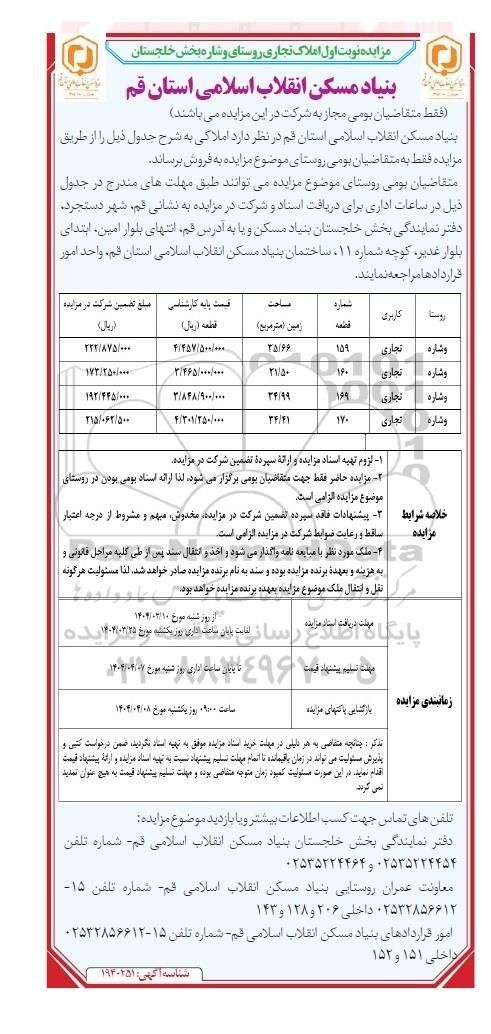 مزایده نوبت اول املاک تجاری روستای وشاره بخش خلجستان
بنیاد مسکن انقلاب اسلامی استان قم
(فقط متقاضیان بومی مجاز به شرکت در این مزایده می باشند)
بنیاد مسکن انقلاب اسلامی استان قم در نظر دارد املاکی به شرح جدول ذیل را از طریق
مزایده فقط به متقاضیان بومی روستای موضوع مزایده به فروش برساند.
متقاضیان بومی روستای موضوع مزایده می توانند طبق مهلت های مندرج در جدول
ذیل در ساعات اداری برای دریافت اسناد و شرکت در مزایده به نشانی قم، شهر دستجرد،
دفتر نمایندگی بخش خلجستان بنیاد مسکن و یا به آدرس قم، انتهای بلوار امین، ابتدای
بلوار غدیر، کوچه شماره ۱۱، ساختمان بنیاد مسکن انقلاب اسلامی استان قم، واحد امور
قراردادها مراجعه نمایند.
روستا کاربری شماره قطعه مساحت زمین (مترمربع) قیمت پایه کارشناسی قطعه (ریال) مبلغ تضمین شرکت در مزایده (ریال)
وشاره تجاری ۱۵۹ ۳۵/۶۶ ۴/۴۵۷/۵۰۰/۰۰۰ ۲۲۲/۸۷۵/۰۰۰
وشاره تجاری ۱۶۰ ۳۱/۵۰ ۳/۴۶۵/۰۰۰/۰۰۰ ۱۷۳/۲۵۰/۰۰۰
وشاره تجاری ۱۶۹ ۳۴/۹۹ ۳/۸۴۸/۹۰۰/۰۰۰ ۱۹۲/۴۴۵/۰۰۰
وشاره تجاری ۱۷۰ ۳۴/۴۱ ۴/۳۰۱/۲۵۰/۰۰۰ ۲۱۵/۰۶۲/۵۰۰
خلاصه شرایط مزایده
۱- لزوم تهیه اسناد مزایده و ارائه سپردۀ تضمین شرکت در مزایده.
۲- مزایده حاضر فقط جهت متقاضیان بومی برگزار می شود، لذا ارائه اسناد بومی بودن در روستای
موضوع مزایده الزامی است.
۳- پیشنهادات فاقد سپرده تضمین شرکت در مزایده، مخدوش، مبهم و مشروط از درجه اعتبار
ساقط و رعایت ضوابط شرکت در مزایده الزامی است.
۴- ملک مورد نظر با مبایعه نامه واگذار می شود و اخذ و انتقال سند پس از طی کلیه مراحل قانونی و
به هزینه و بعهدۀ برنده مزایده بوده و سند به نام برنده مزایده صادر خواهد شد، لذا مسئولیت هرگونه
نقل و انتقال ملک موضوع مزایده بعهده برنده مزایده خواهد بود.
زمانبندی مزایده
مهلت دریافت اسناد مزایده
از روز شنبه مورخ ۱۴۰۴/۰۳/۱۰
لغایت پایان ساعت اداری روز یکشنبه مورخ ۱۴۰۴/۰۳/۲۵
مهلت تسلیم پیشنهاد قیمت
تا پایان ساعت اداری روز شنبه مورخ ۱۴۰۴/۰۴/۰۷
بازگشایی پاکتهای مزایده
ساعت ۰۹:۰۰ روز یکشنبه مورخ ۱۴۰۴/۰۴/۰۸
تذکر : چنانچه متقاضی به هر دلیلی در مهلت خرید اسناد مزایده موفق به تهیه اسناد نگردید، ضمن درخواست کتبی و
پذیرش مسئولیت می تواند در زمان باقیمانده تا اتمام مهلت تسلیم پیشنهاد نسبت به تهیه اسناد مزایده و ارائۀ پیشنهاد قیمت
اقدام نماید. در این صورت مسئولیت کمبود زمان متوجه متقاضی بوده و مهلت تسلیم پیشنهاد قیمت به هیچ عنوان تمدید
نمی گردد.
تلفن های تماس جهت کسب اطلاعات بیشتر و یا بازدید موضوع مزایده:
دفتر نمایندگی بخش خلجستان بنیاد مسکن انقلاب اسلامی قم- شماره تلفن
۰۲۵۳۵۲۲۴۴۵۴ و ۰۲۵۳۵۲۲۴۴۶۴
معاونت عمران روستایی بنیاد مسکن انقلاب اسلامی قم- شماره تلفن ۱۵-
۰۲۵۳۲۸۵۶۶۱۲ داخلی ۲۰۶ و ۱۲۸ و ۱۴۳
امور قراردادهای بنیاد مسکن انقلاب اسلامی قم- شماره تلفن ۱۵-۰۲۵۳۲۸۵۶۶۱۲
داخلی ۱۵۱ و ۱۵۲
شناسه آگهی: ۱۹۴۰۲۵۱